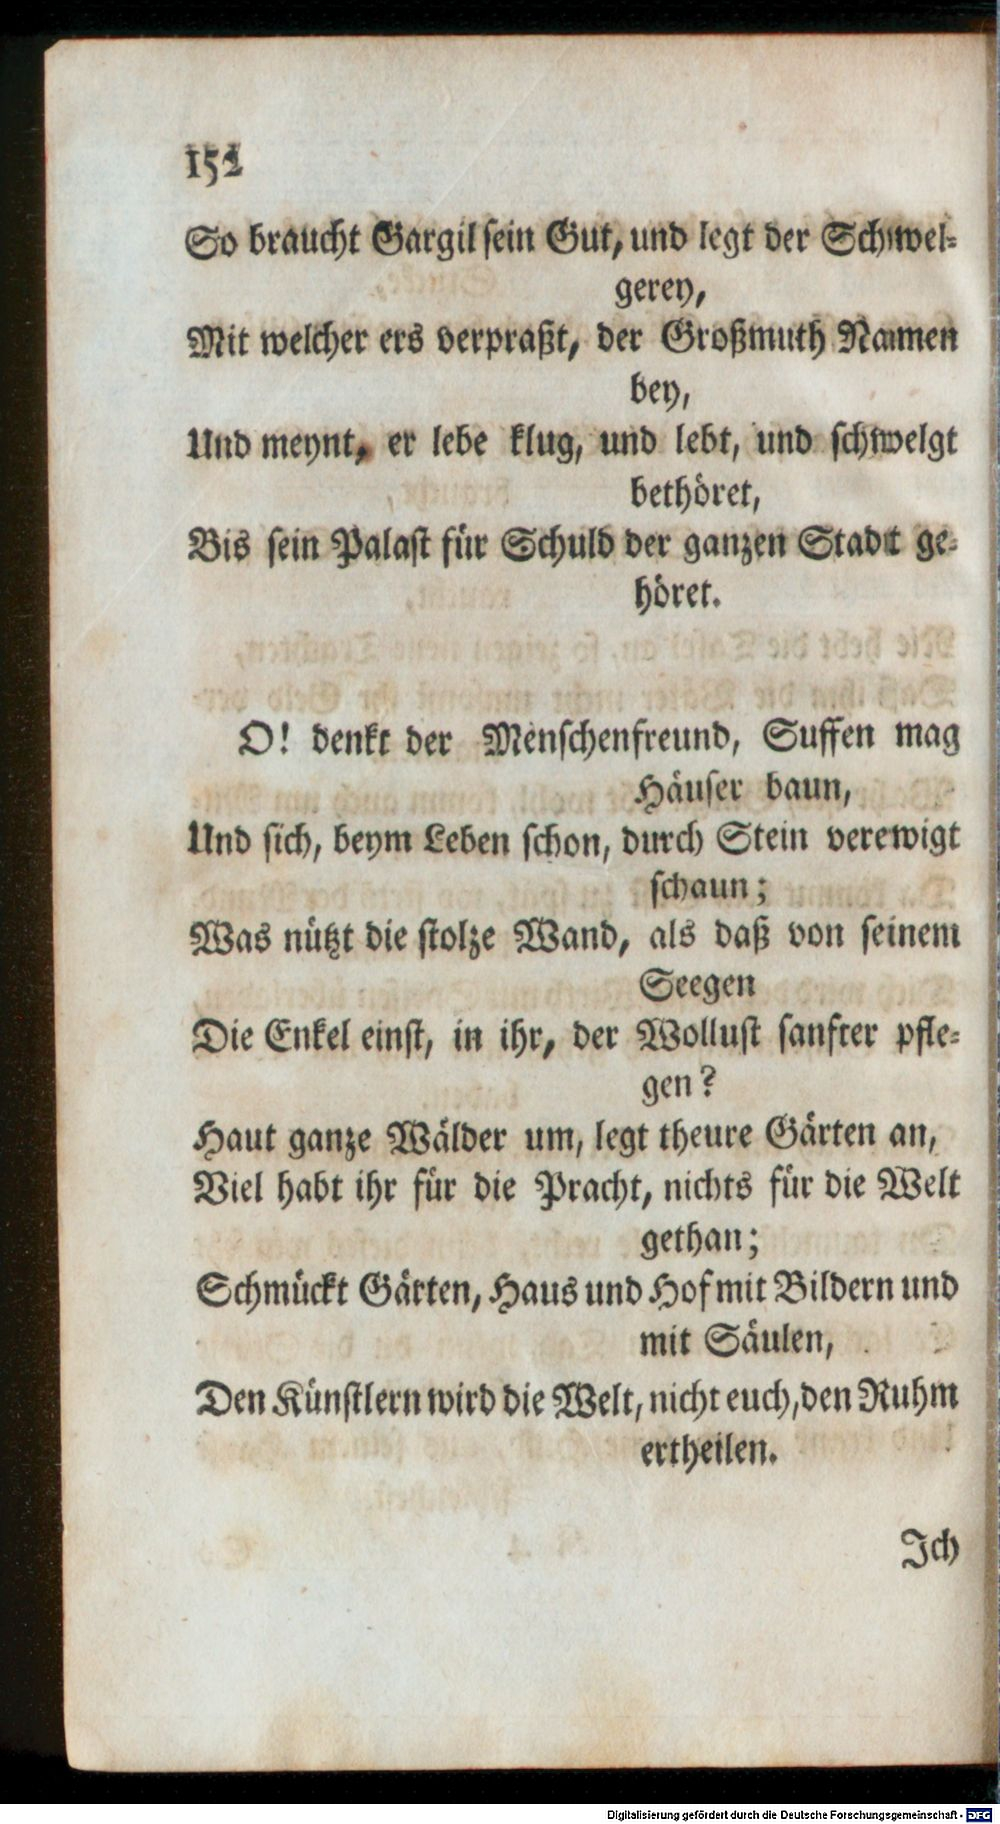 152
So braucht Gargil sein Gut, und legt der Schwel-
gerey,
Mit welcher ers verpraßt, der Großmuth Namen
bey,
Und meynt, er lebe klug, und lebt, und schwelgt
bethöret,
Bis sein Palast für Schuld der ganzen Stadt ge-
höret.
O! denkt der Menschenfreund, Suffen mag
Häuser baun,
Und sich, beym Leben schon, durch Stein verewigt
schaun;
Was nützt die stolze Wand, als daß von seinem
Seegen
Die Enkel einst, in ihr, der Wollust sanfter pfle-
gen?
Haut ganze Wälder um, legt theure Gärten an,
Viel habt ihr für die Pracht, nichts für die Welt
gethan;
Schmückt Gärten, Haus und Hof mit Bildern und
mit Säulen,
Den Künstlern wird die Welt, nicht euch, den Ruhm
ertheilen.
Ich
Digitalisierung gefördert durch die Deutsche Forschungsgemeinschaft - DFG